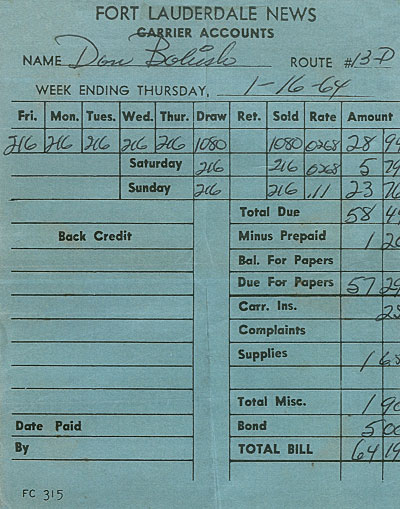 FORT LAUDERDALE NEWS
CARRIER ACCOUNTS
NAME Don Bolish ROUTE #13-D
WEEK ENDING THURSDAY, 1-16-64
Fri. Mon. Tues. Wed. Thur. Draw Ret. Sold Rate Amount
216 216 216 216 216 1080 1080 .0268 28 94
Saturday 216 216 .0268 5 79
Sunday 216 216 .11 23 76
Total Due 58 49
Back Credit Minus Prepaid 1 20
Bal. For Papers
Due For Papers 57 29
Carr. Ins. 25
Complaints
Supplies 1 65
Total Misc. 1 90
Date Paid Bond 5 00
By TOTAL BILL 64 19
FC 315